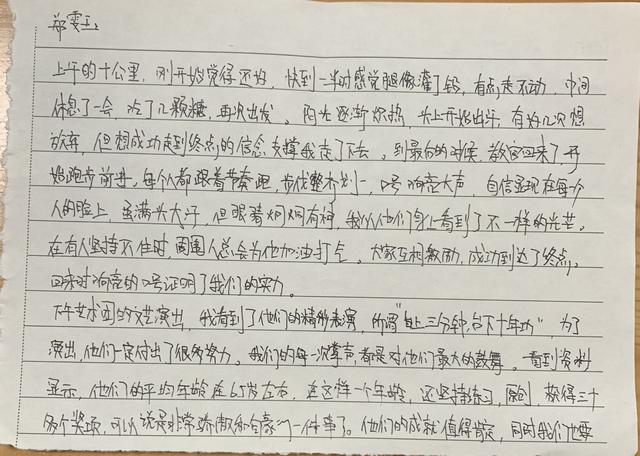 郑雯玉
上午的十公里，刚开始觉得还好，快到一半时感觉腿像灌了铅，有点走不动，中间
休息了一会，吃了几颗糖，再次出发。阳光逐渐炽热，头上开始出汗，有好几次想
放弃，但想成功走到终点的信念支撑我走了下去。到最后的时候，教官回来了，开
始跑步前进，每个人都跟着节奏跑，步伐整齐划一，口号响亮大声，自信显现在每个
人的脸上，虽满头大汗，但眼睛炯炯有神，我从他们身上看到了不一样的光芒。
在有人坚持不住时，周围人总会为他加油打气，大家互相激励，成功到达了终点，
回来时响亮的口号证明了我们的实力。
下午艺术团的文艺演出，我看到了他们的精彩表演，所谓“台上三分钟，台下十年功”，为了
演出，他们一定付出了很多努力。我们的每一次掌声，都是对他们最大的鼓舞。看到资料
显示，他们的平均年龄在65岁左右，在这样一个年龄，还坚持练习，原创，获得三十
多个奖项，可以说是非常骄傲和自豪的一件事了。他们的成就值得肯定，同时我们也要